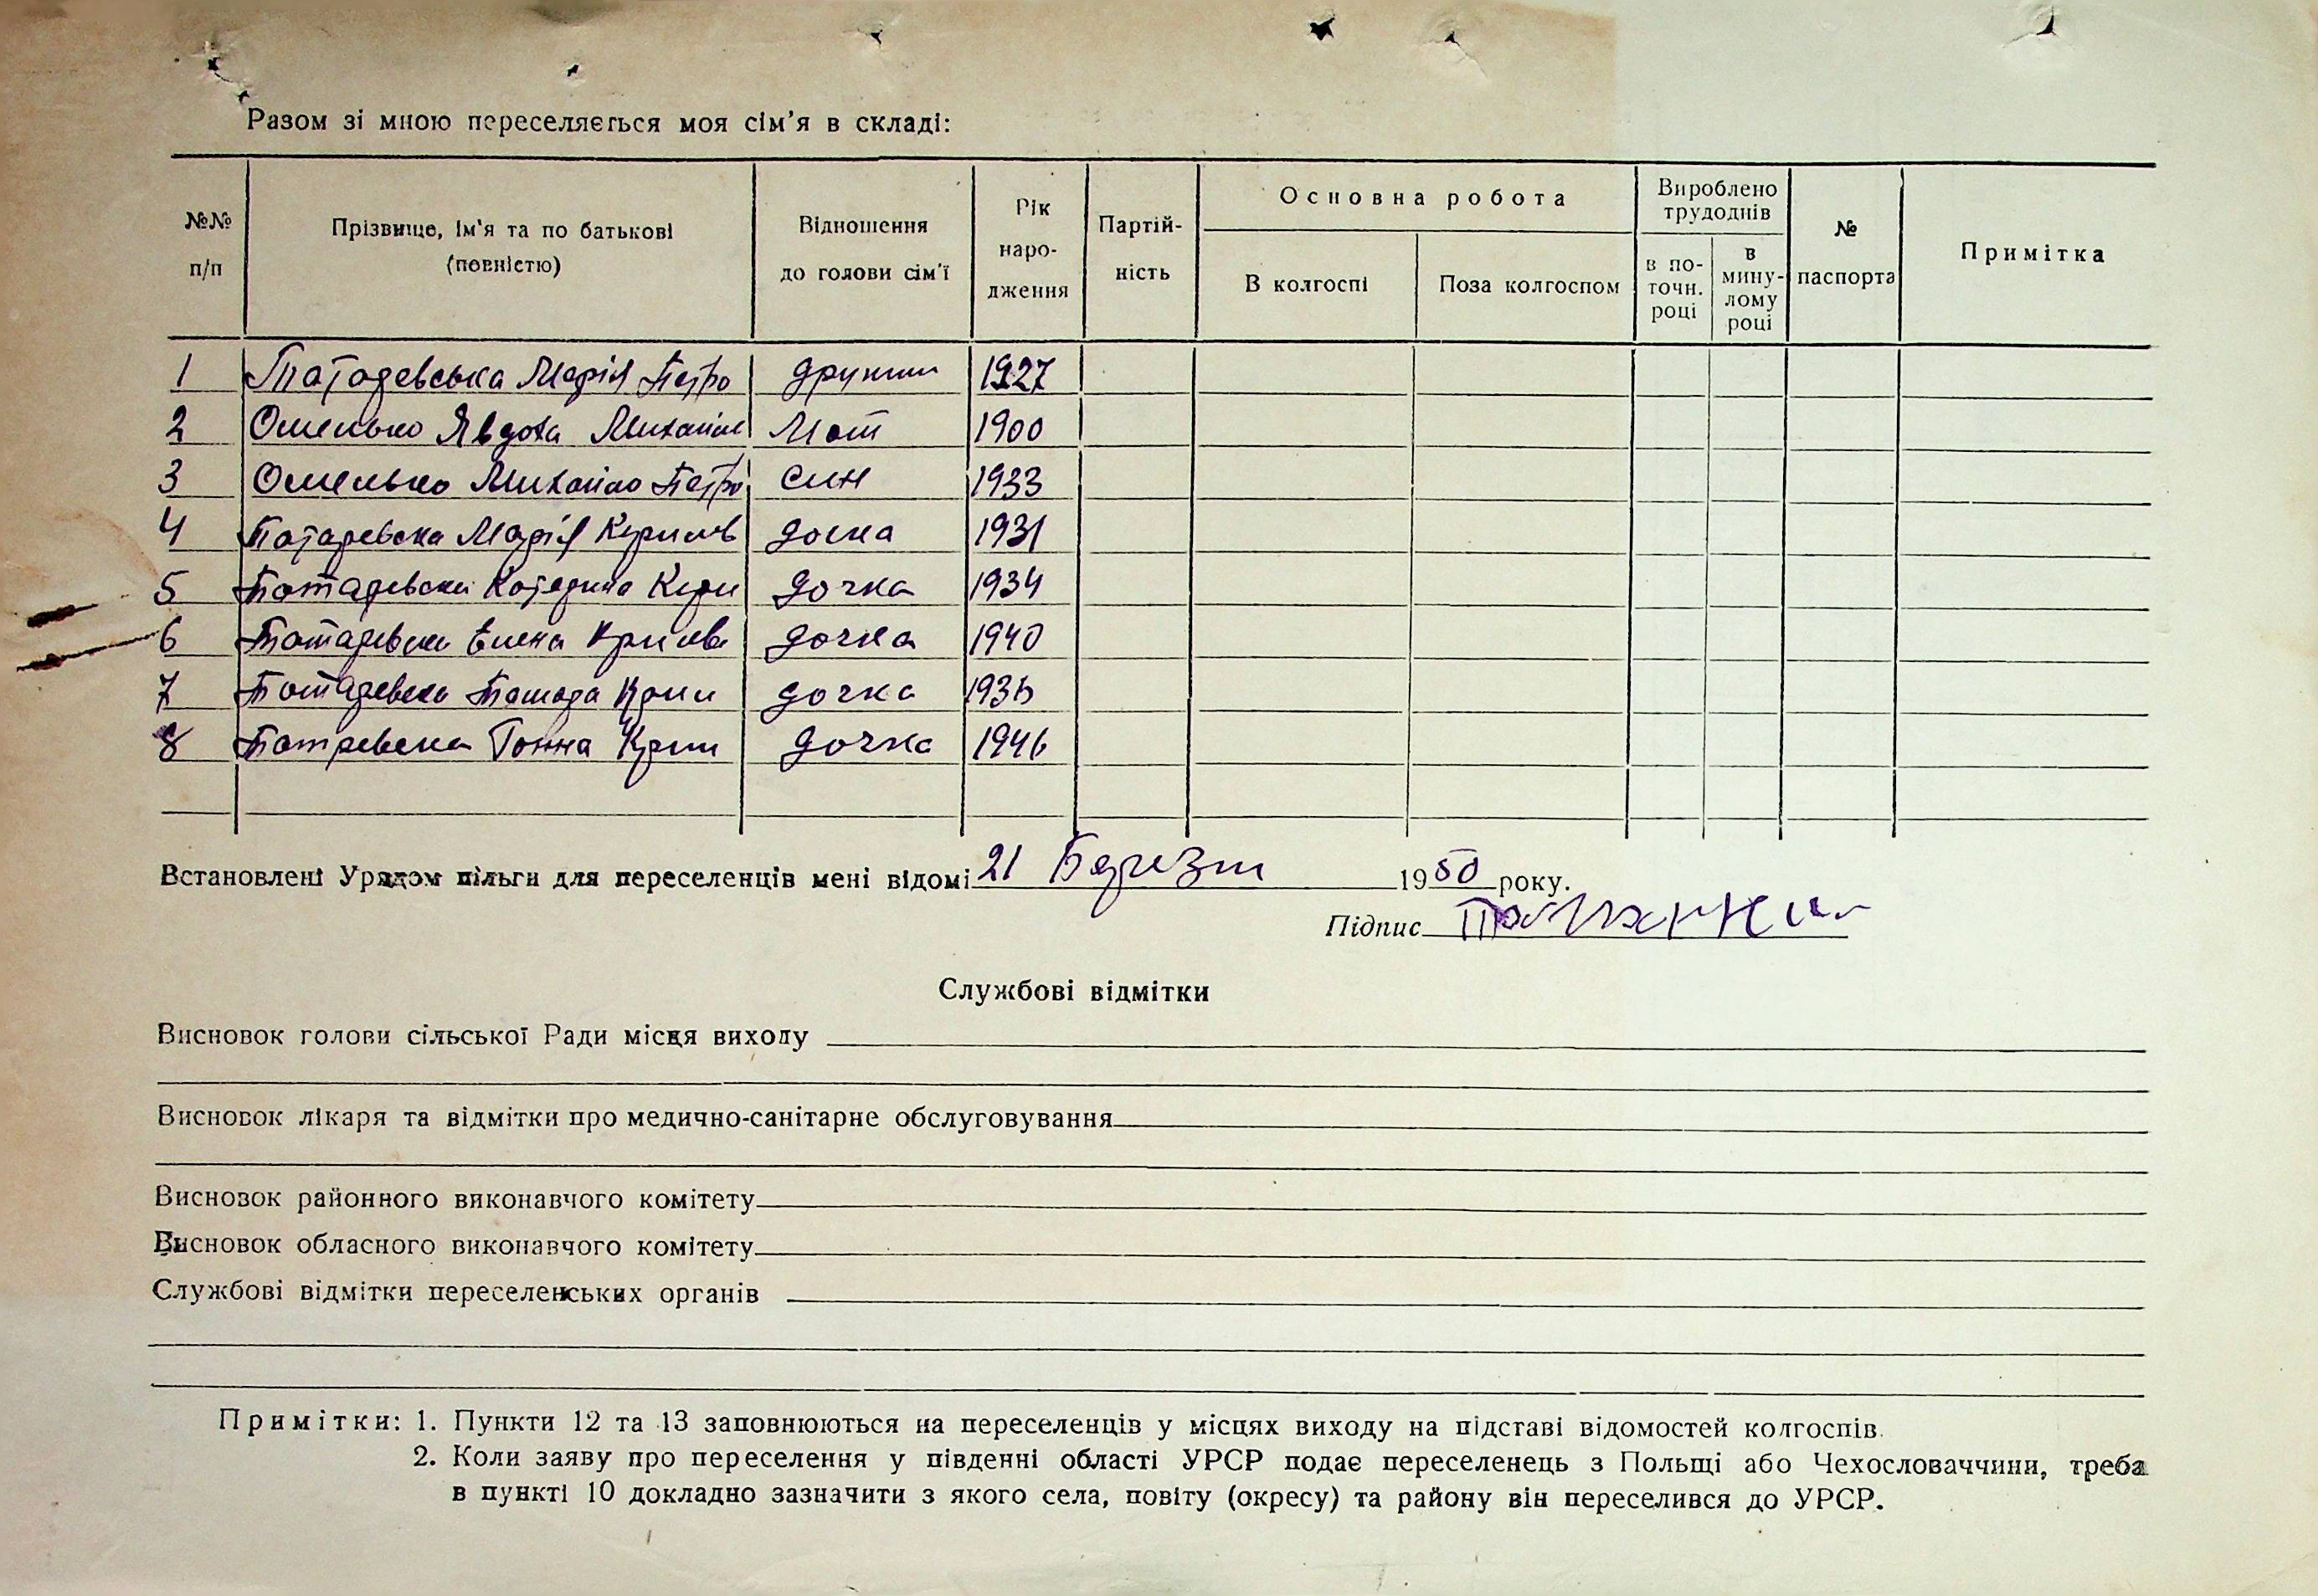 Разом зі мною переселяється моя сім'я в складі:
№№ п/п
Прізвище, ім'я та по батькові (повністю)
Відношення до голови сім'ї
Рік народження
Партійність
Основна робота
В колгоспі
Поза колгоспом
Вироблено трудоднів
в поточн. році
в минулому році
№ паспорта
Примітка
1 Марія Петро 1927
2 Омелько Явдоха Михайл Мати 1900
3 Омелько Михайло Петро син 1933
4 Марія Кирилів дочка 1931
5 Катерина Кири дочка 1934
6 дочка 1940
7 дочка
8 Ганна дочка 1946
Встановлені Урядом пільги для переселенців мені відомі 21 Березня 1950 року.
Підпис
Службові відмітки
Висновок голови сільської Ради місця виходу
Висновок лікаря та відмітки про медично-санітарне обслуговування
Висновок районного виконавчого комітету
Висновок обласного виконавчого комітету
Службові відмітки переселенських органів
Примітки: 1. Пункти 12 та 13 заповнюються на переселенців у місцях виходу на підставі відомостей колгоспів.
2. Коли заяву про переселення у південні області УРСР подає переселенець з Польщі або Чехословаччини, треба
в пункті 10 докладно зазначити з якого села, повіту (окресу) та району він переселився до УРСР.